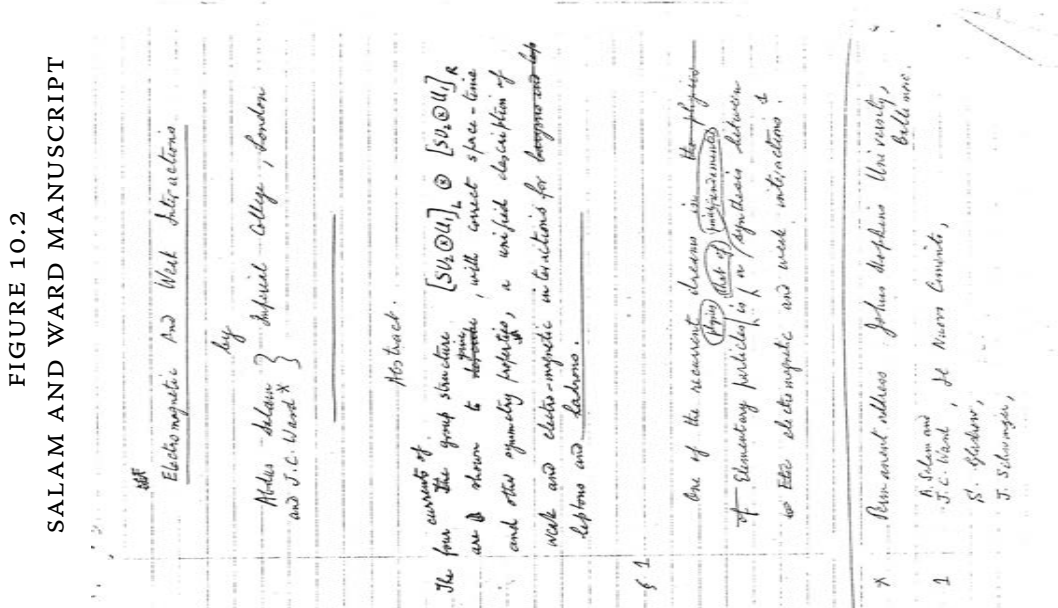 FIGURE 10.2
SALAM AND WARD MANUSCRIPT
Electromagnetic And Weak Interactions
by
Abdus Salam } Imperial College, London
and J.C. Ward *
Abstract.
The four currents of the group structure [SU₂⊗U₁]_L ⊗ [SU₂⊗U₁]_R
are shown to give, with correct space-time
and other symmetry properties, a unified description of
weak and electro-magnetic interactions for baryons and lep
leptons and hadrons.
§ 1
One of the recurrent dreams in the physics
of Elementary particles physics is that of a fundamental synthesis between
electromagnetic and weak interactions. 1
* Permanent address Johns Hopkins University,
Baltimore.
1 A. Salam and
J.C. Ward, Il Nuovo Cimento,
S. Glashow,
J. Schwinger,